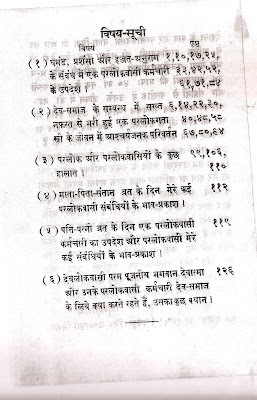 विषय-सूची
विषय पृष्ठ
(१) घमंड, प्रशंसा और इतअ-अनुराग १,१०,१७,२५,
के संबंध में एक परलोकवासी कर्मचारी ३३,४२,५२,
के उपदेश। ६१,७१,८४
(२) देव-समाज के सम्बन्ध में सख़्त ६,१४,२२,३०,
नफ़रत से भरी हुई एक परलोकगता ४०,४८,५८
स्त्री के जीवन में आश्चर्यजनक परिवर्तन ६७,८०,९४
(३) परलोक और परलोकवासियों के कुछ ९९,१०६,
हालात। ११०
(४) माता-पिता-संतान व्रत के दिन मेरे कई ११२
परलोकवासी संबंधियों के भाव-प्रकाश।
(५) पति-पत्नी व्रत के दिन एक परलोकवासी ११९
कर्मचारी का उपदेश और परलोकवासी मेरे
कई संबंधियों के भाव-प्रकाश।
(६) देवलोकवासी परम पूजनीय भगवान देवात्मा १२६
और उनके परलोकवासी कर्मचारी देव-समाज
के लिये क्या करते रहते हैं, उसका कुछ बयान।